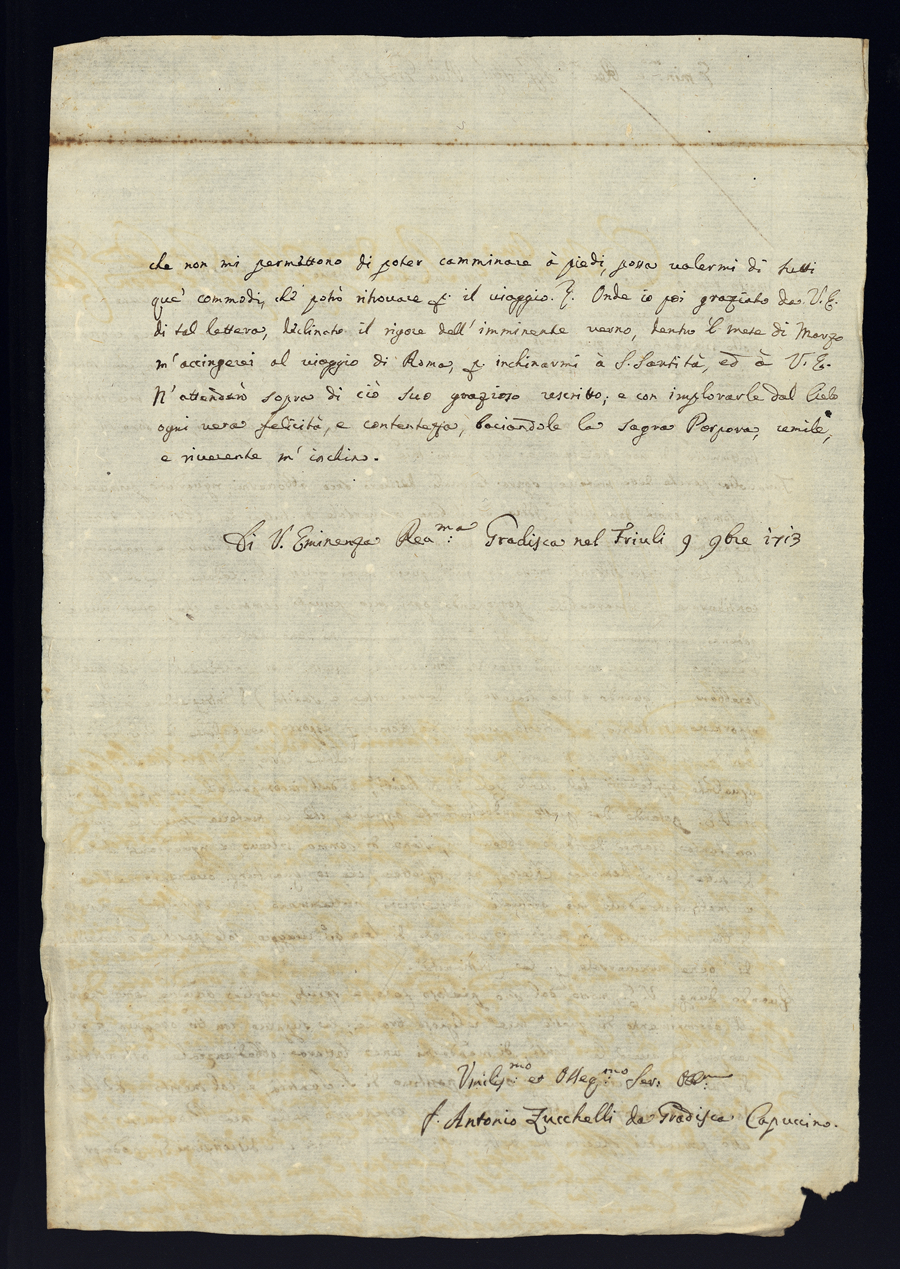 che non mi permettono di poter camminare à piedi, possa valermi di tutti
que' commodi, che potrò ritrovare p. il viaggio. Onde io poi graziato da V. E.
di tal lettera, declinato il rigore dell'imminente verno, dentro 'l mese di Marzo
m'accingerei al viaggio di Roma, p. inchinarmi à S. Santità, ed à V. E.
N'attenderò sopra di ciò suo grazioso rescritto; e con implorarle dal Cielo
ogni vera felicità, e contentezza, baciandole la sagra Porpora, umile,
e riverente m'inchino.
Di V. Eminenza Rea.ma Gradisca nel Friuli 9 9bre 1713
Umiliss.mo et Osseq.mo Ser.
f. Antonio Zucchelli da Gradisca Capuccino.